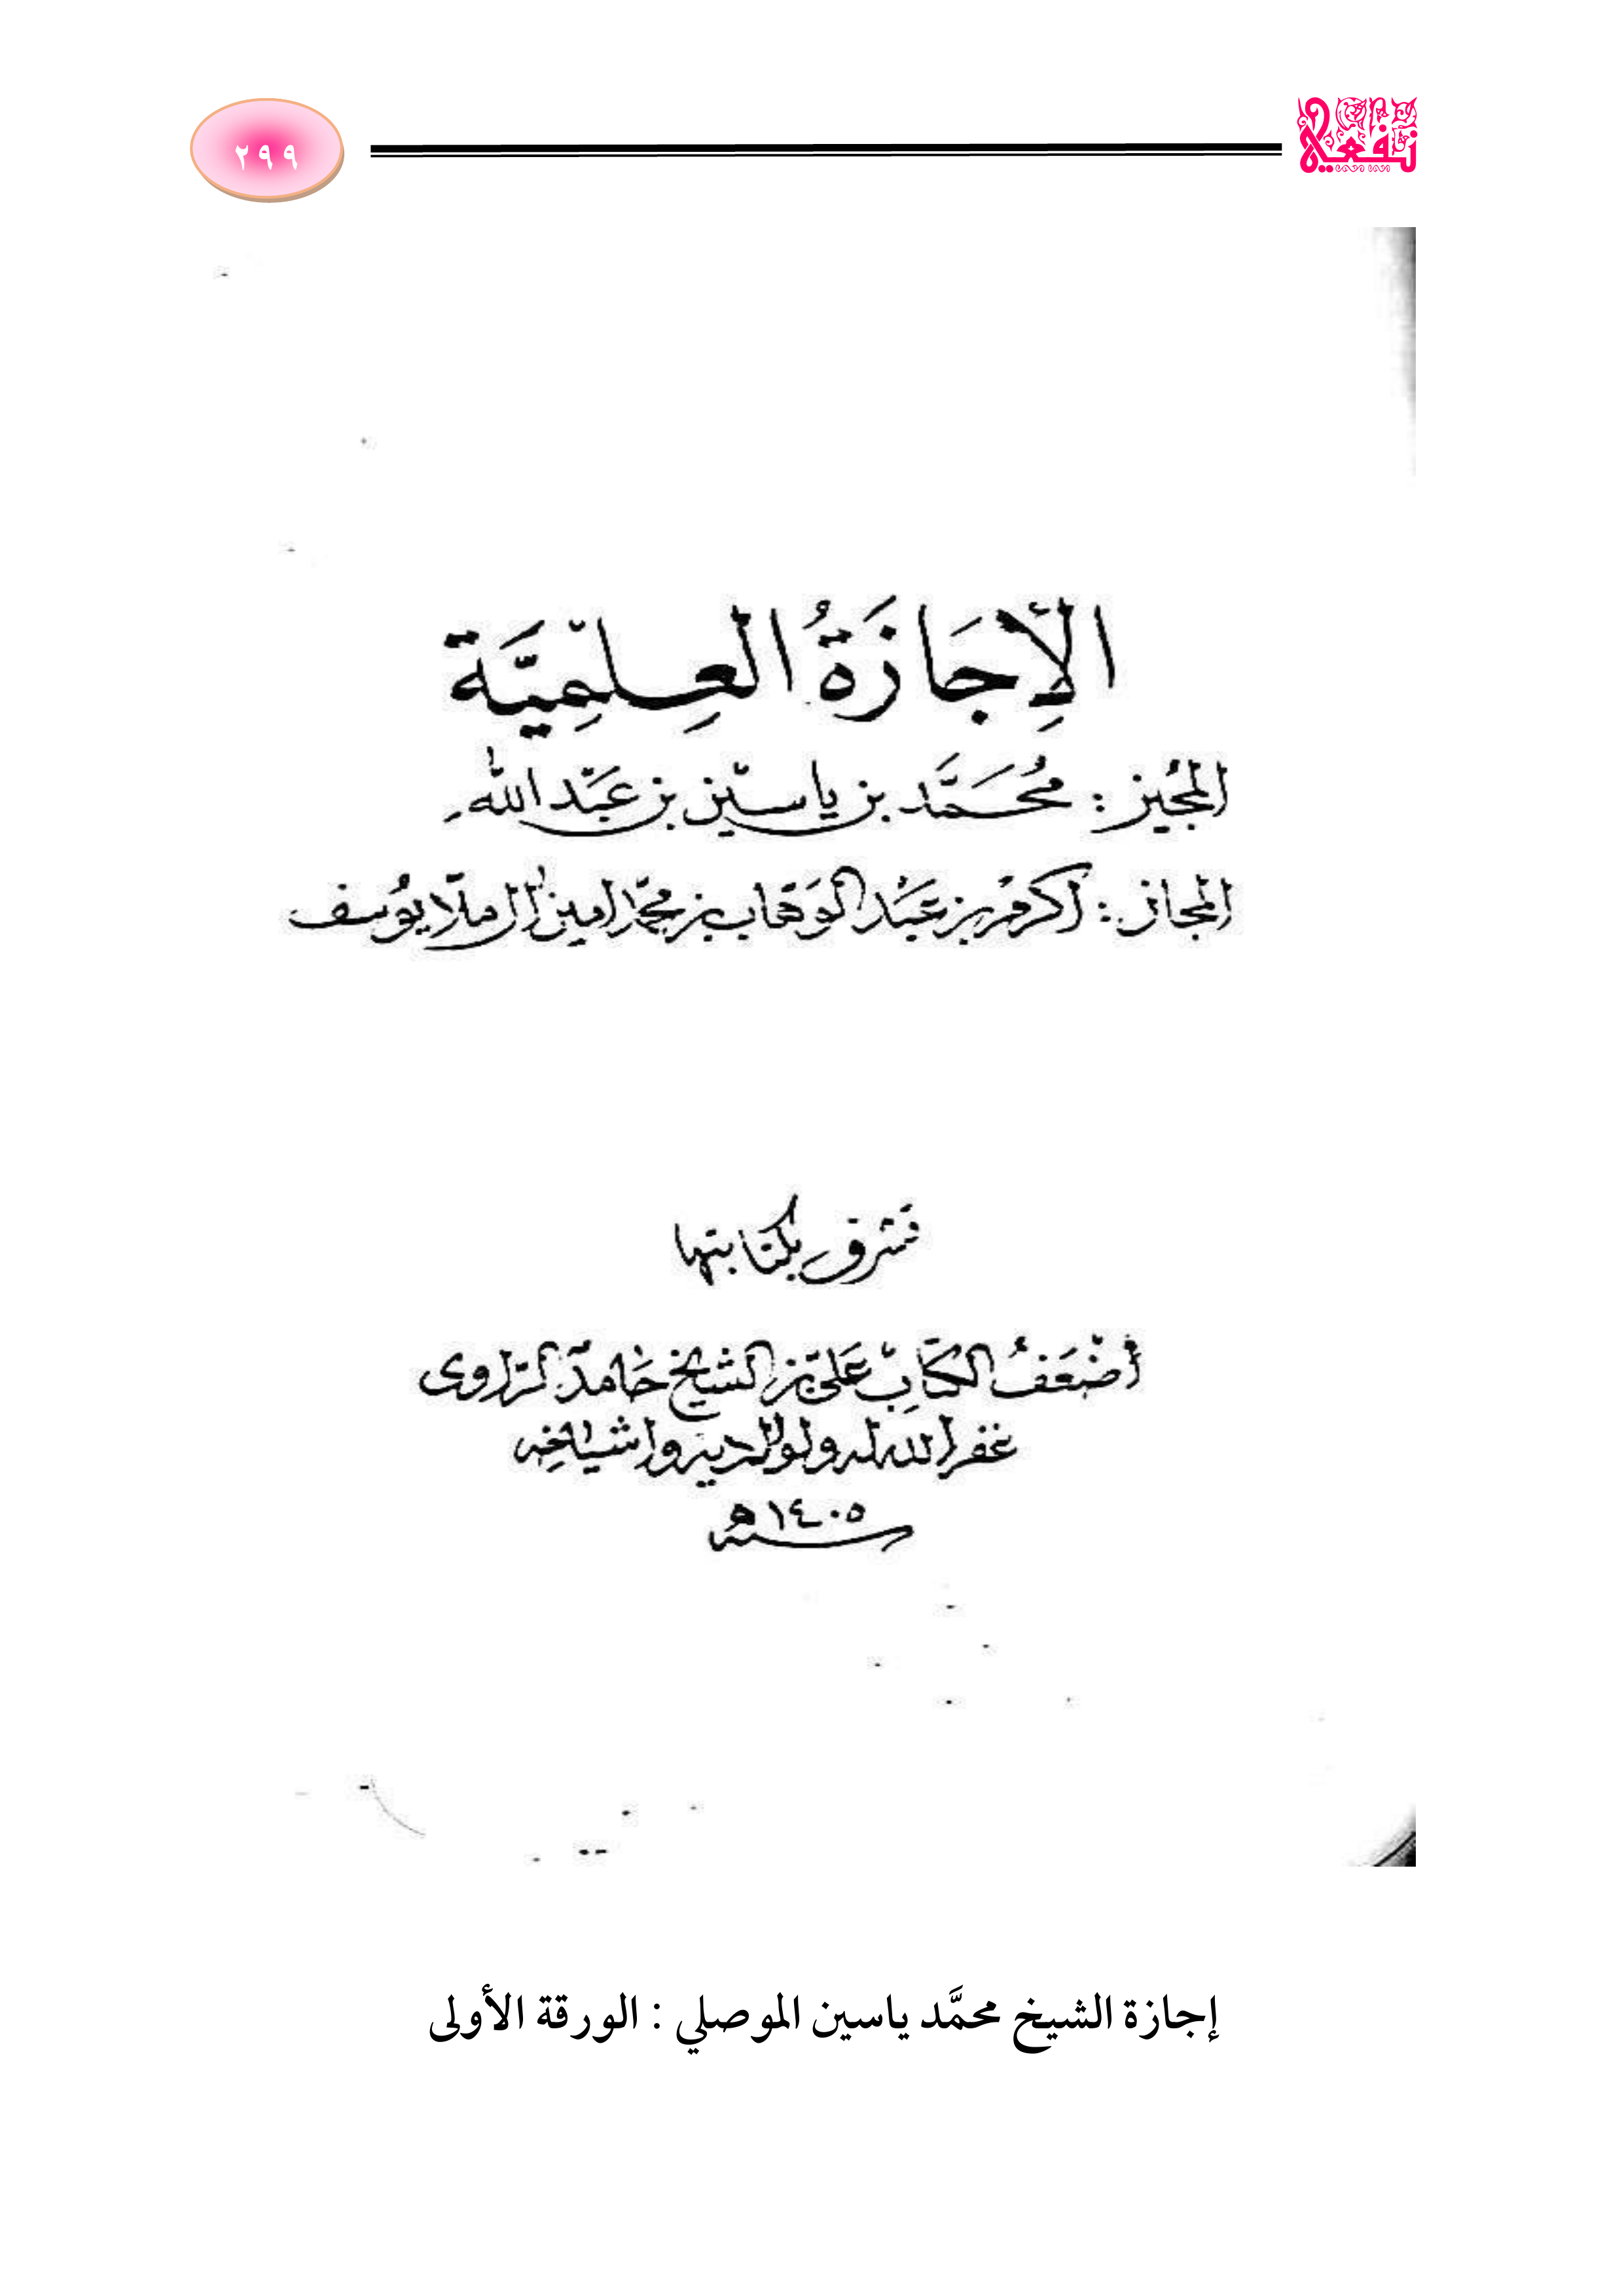 ٢٩٩
الإِجَازَةُ العِلْمِيَّة
المجُيز : مُحَمَّد بن ياسيْن بن عَبْد الله
المجاز : اكرم بن عَبْد الوَهاب بن محمّد امين ال ملّا يوُسف
تشرف بكتابتها
أضْعَفُ الكتَّابْ عَلي بن الشيخ حَامد الرّاوى
غفر الله له ولوالديه واشياخه
سنة ١٤٠٥ ه
إجازة الشيخ محمَّد ياسين الموصلي : الورقة الأولى